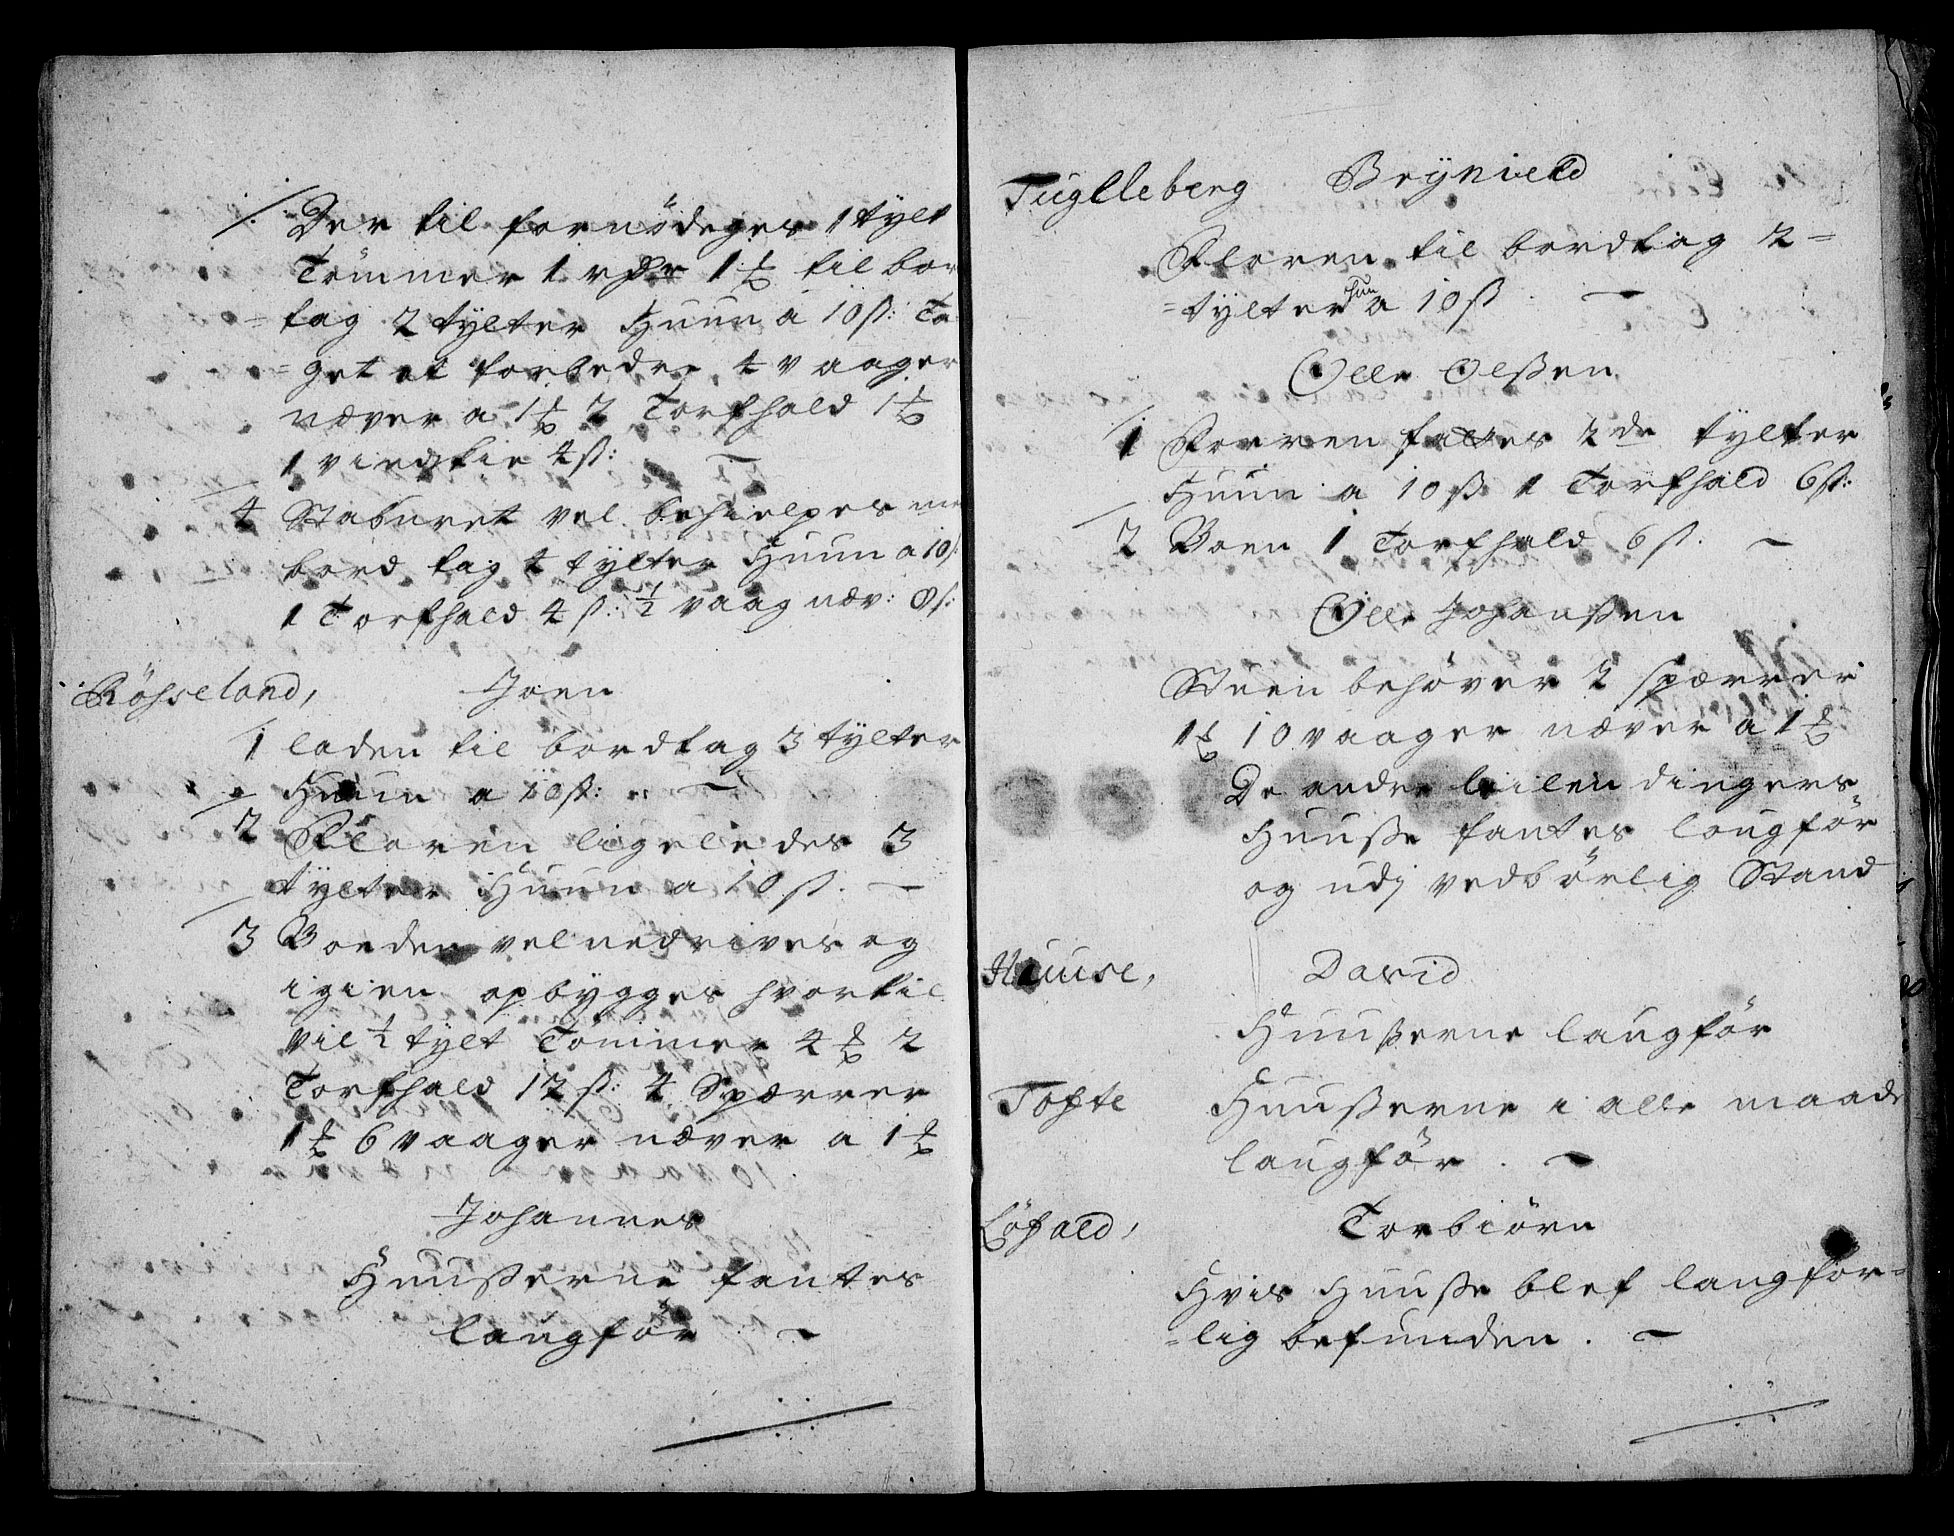 Der til fornödeges 1 tylt
Tömmer 1 rdr 1 ₻ til bor
tag 2 tylter Huun a 10 ß: Ta
get at forbedre 4 vaager
næver a 1 ₻ 2 Torfhald 1 ₻
1 vindskie 4 ß:
4 Staburet vel behielpes me
bord tag 4 tylter Huun a 10 ß:
1 Torfhald 4 ß: ½ vaag næv: 8 ß:
Rösseland, Joen
1 laden til bordtag 3 tylter
Huun a 10 ß:
2 Floren ligeledes 3
tylter Huun a 10 ß.
3 Boeden vel nedrives og
igien opbygges hvortil
vil ½ tylt Tömmer 4 ₻ 2
Torfhald 12 ß: 4 Spærrer
1 ₻ 6 vaager næver a 1 ₻
Johannes
Huußerne fantes
laugför
Fuglleberg Brynield
Floren til bordtag 2=
=tylter huun a 10 ß
Olle Olßen
1 Forren fattes 2de tylter
Huun a 10 ß 1 Torfhald 6 ß:
2 Boen 1 Torfhald 6 ß.
Olle Johanßen
Stuen behöver 4 spærrer
1 ₻ 10 vaager næver a 1 ₻
De andre leilendingers
Huuße fantes laugför
og udj vedbörlig Stand
Huuse, David
Huußerne laugför
Tofte Huußerne i alle maade
laugför.
Löfald, Torbiörn
Hvis Huuße blef laugför=
=lig befunden.